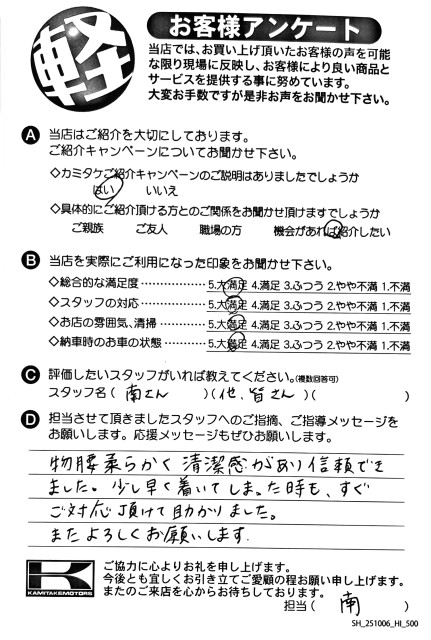 軽
お客様アンケート
当店では、お買い上げ頂いたお客様の声を可能
な限り現場に反映し、お客様により良い商品と
サービスを提供する事に努めています。
大変お手数ですが是非お声をお聞かせ下さい。
A 当店はご紹介を大切にしております。
ご紹介キャンペーンについてお聞かせ下さい。
◇カミタケご紹介キャンペーンのご説明はありましたでしょうか
はい いいえ
◇具体的にご紹介頂ける方とのご関係をお聞かせ頂けますでしょうか
ご親族 ご友人 職場の方 機会があれば紹介したい
B 当店を実際にご利用になった印象をお聞かせ下さい。
◇総合的な満足度 ・・・・・・・・・・・・・ 5.大満足 4.満足 3.ふつう 2.やや不満 1.不満
◇スタッフの対応 ・・・・・・・・・・・・・ 5.大満足 4.満足 3.ふつう 2.やや不満 1.不満
◇お店の雰囲気、清掃 ・・・・・・・・・ 5.大満足 4.満足 3.ふつう 2.やや不満 1.不満
◇納車時のお車の状態 ・・・・・・・・・ 5.大満足 4.満足 3.ふつう 2.やや不満 1.不満
C 評価したいスタッフがいれば教えてください。(複数回答可)
スタッフ名( 南さん )(他、皆さん )( )
D 担当させて頂きましたスタッフへのご指摘、ご指導メッセージを
お願いします。応援メッセージもぜひお願いします。
物腰柔らかく清潔感があり信頼でき
ました。少し早く着いてしまった時も、すぐ
ご対応頂けて助かりました。
またよろしくお願いします.
K
KAMITAKEMOTORS
ご協力に心よりお礼を申し上げます。
今後とも宜しくお引き立てご愛顧の程お願い申し上げます。
またのご来店を心からお待ちしております。
担当( 南 )
SH_251006_HI_500